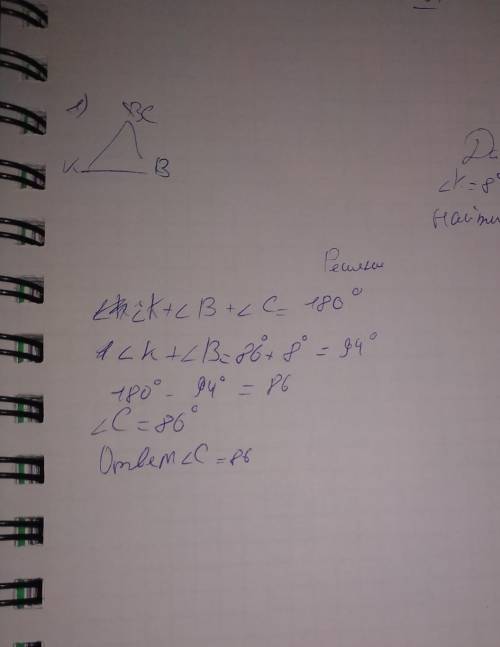 1)
C
K B
∠K = 8°
Решен
∠K + ∠B + ∠C = 180°
∠K + ∠B = 86° + 8° = 94°
180° - 94° = 86
∠C = 86°
Ответ ∠C = 86